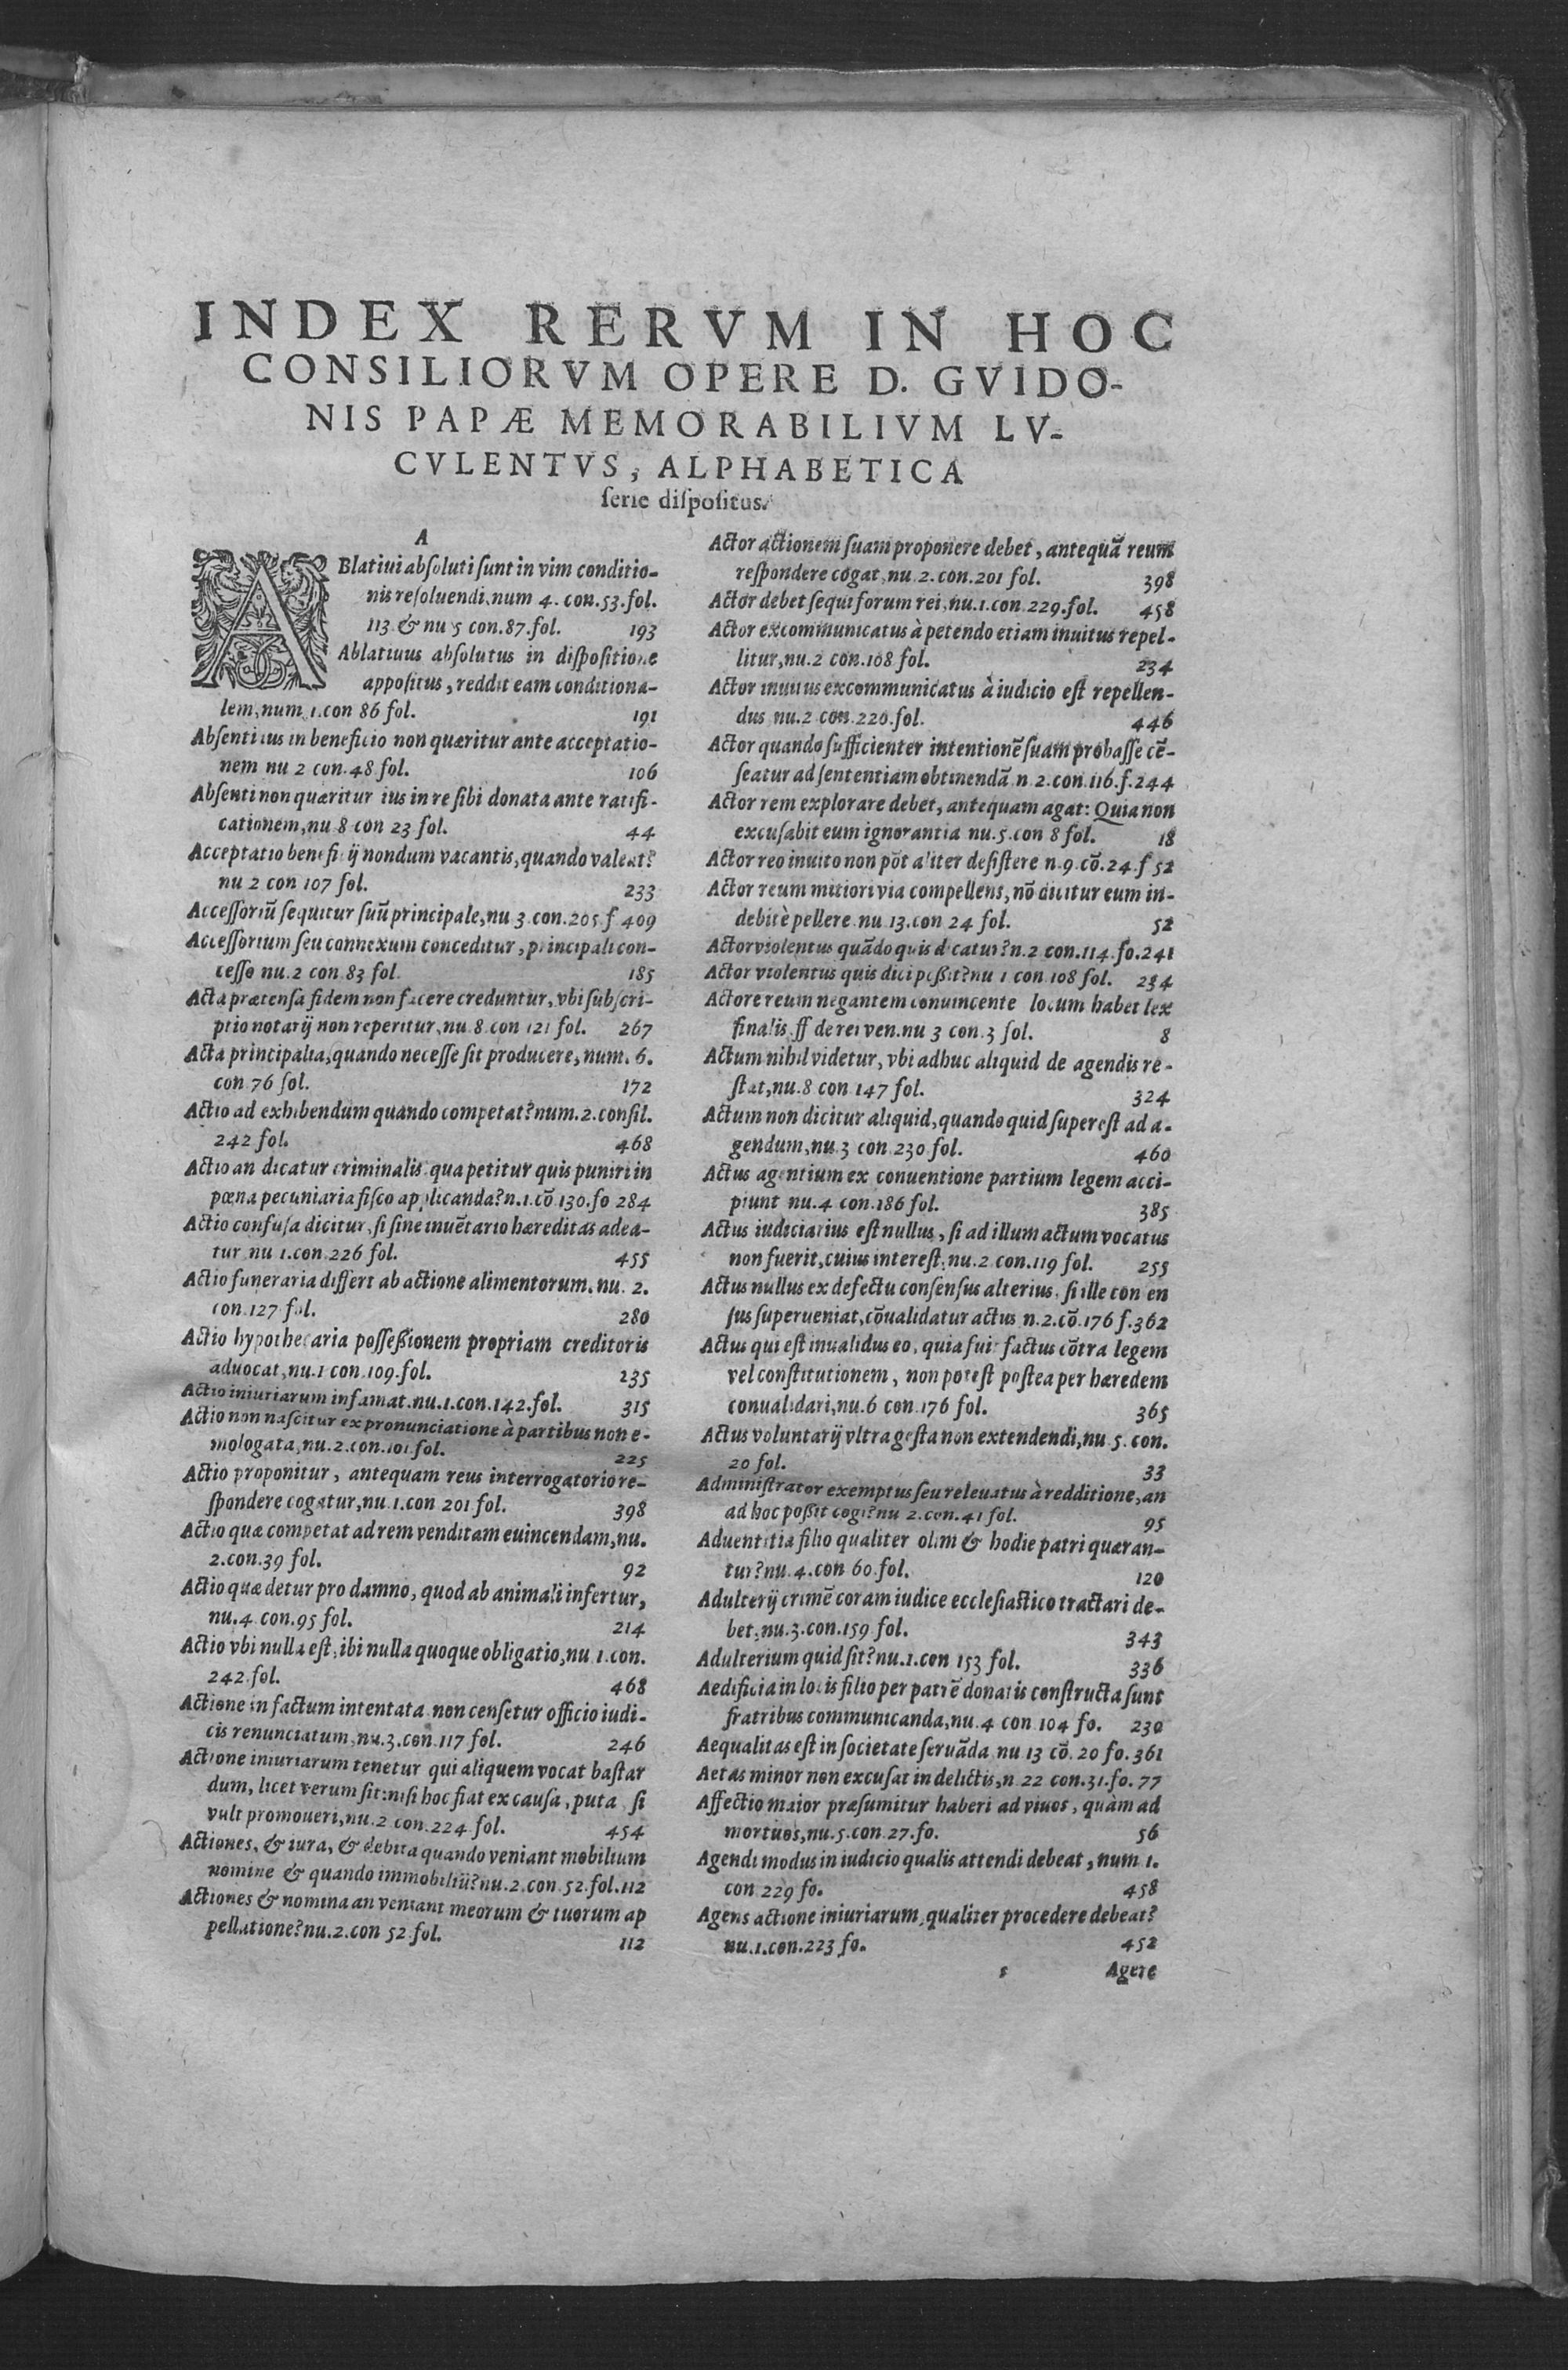 INDEX RERVM IN HOC
CONSILIORVM OPERE D. GVIDO-
NIS PAPÆ MEMORABILIVM LV-
CVLENTVS, ALPHABETICA
serie dispositus.
A
ABlatiui absoluti sunt in vim conditio-
nis resoluendi, num 4. con. 53. fol.
113. & nu 5 con. 87. fol. 193
Ablatiuus absolutus in dispositione
appositus, reddit eam conditiona-
lem, num. 1. con 86 fol. 191
Absenti ius in beneficio non quæritur ante acceptatio-
nem nu 2 con. 48 fol. 106
Absenti non quæritur ius in re sibi donata ante ratifi-
cationem, nu 8 con 23 fol. 44
Acceptatio beneficij nondum vacantis, quando valeat?
nu 2 con 107 fol. 233
Accessoriũ sequitur suũ principale, nu 3. con. 205. f 409
Accessorium seu connexum conceditur, principali con-
cesso nu. 2 con. 83 fol. 185
Acta prætensa fidem non facere creduntur, vbi subscri-
ptio notarij non reperitur, nu. 8. con 121 fol. 267
Acta principalia, quando necesse sit producere, num. 6.
con 76 fol. 172
Actio ad exhibendum quando competat? num. 2. consil.
242 fol. 468
Actio an dicatur criminalis, qua petitur quis puniri in
pœna pecuniaria fisco applicanda? n. 1. cõ 130. fo 284
Actio confusa dicitur, si sine inuẽtario hæreditas adea-
tur nu 1. con. 226 fol. 455
Actio funeraria differt ab actione alimentorum. nu. 2.
con. 127 fol. 280
Actio hypothecaria possessionem propriam creditoris
aduocat, nu. 1 con. 109. fol. 235
Actio iniuriarum infamat. nu. 1. con. 142. fol. 315
Actio non nascitur ex pronunciatione à partibus non e-
mologata, nu. 2. con. 101 fol. 225
Actio proponitur, antequam reus interrogatorio re-
spondere cogatur, nu. 1. con 201 fol. 398
Actio quæ competat ad rem venditam euincendam, nu.
2. con. 39 fol. 92
Actio quæ detur pro damno, quod ab animali infertur,
nu. 4 con. 95 fol. 214
Actio vbi nulla est, ibi nulla quoque obligatio, nu 1. con.
242. fol. 468
Actione in factum intentata non censetur officio iudi-
cis renunciatum, nu. 3. con. 117 fol. 246
Actione iniuriarum tenetur qui aliquem vocat bastar
dum, licet verum sit: nisi hoc fiat ex causa, puta si
vult promoueri, nu. 2 con. 224 fol. 454
Actiones, & iura, & debita quando veniant mobilium
nomine & quando immobiliũ? nu. 2. con. 52. fol. 112
Actiones & nomina an veniant meorum & tuorum ap
pellatione? nu. 2. con 52 fol. 112
Actor actionem suam proponere debet, antequã reum
respondere cogat, nu. 2. con. 201 fol. 398
Actor debet sequi forum rei, nu. 1. con. 229. fol. 458
Actor excommunicatus à petendo etiam inuitus repel-
litur, nu. 2 con. 108 fol. 234
Actor inuitus excommunicatus à iudicio est repellen-
dus nu. 2 con. 220. fol. 446
Actor quando sufficienter intentionẽ suam probasse cẽ-
seatur ad sententiam obtinendã n. 2. con. 116. f. 244
Actor rem explorare debet, antequam agat: Quia non
excusabit eum ignorantia nu. 5. con 8 fol. 18
Actor reo inuito non põt aliter desistere n. 9. cõ. 24. f 52
Actor reum mitiori via compellens, nõ dicitur eum in-
debitè pellere nu. 13. con 24 fol. 52
Actor violentus quãdo quis dicatur? n. 2 con. 114. fo. 241
Actor violentus quis dici possit? nu 1 con. 108 fol. 234
Actore reum negantem conuincente locum habet lex
finalis ff de rei ven. nu 3 con. 3 fol. 8
Actum nihil videtur, vbi adhuc aliquid de agendis re-
stat, nu. 8 con 147 fol. 324
Actum non dicitur aliquid, quando quid superest ad a-
gendum, nu. 3 con 230 fol. 460
Actus agentium ex conuentione partium legem acci-
piunt nu. 4 con. 186 fol. 385
Actus iudiciarius est nullus, si ad illum actum vocatus
non fuerit, cuius interest, nu. 2 con. 119 fol. 255
Actus nullus ex defectu consensus alterius, si ille con en
sus superueniat, cõualidatur actus n. 2. cõ. 176 f. 362
Actus qui est inualidus eo, quia fuit factus cõtra legem
vel constitutionem, non potest postea per hæredem
conualidari, nu. 6 con. 176 fol. 365
Actus voluntarij vltra gesta non extendendi, nu. 5. con.
20 fol. 33
Administrator exemptus seu releuatus à redditione, an
ad hoc possit cogi? nu 2. con. 41 fol. 95
Aduentitia filio qualiter olim & hodie patri quæran-
tur? nu. 4. con 60. fol. 120
Adulterij crimẽ coram iudice ecclesiastico tractari de-
bet, nu. 3. con. 159 fol. 343
Adulterium quid sit? nu. 1. con 153 fol. 336
Aedificia in locis filio per patrẽ donatis constructa sunt
fratribus communicanda, nu. 4 con 104 fo. 230
Aequalitas est in societate seruãda nu 13 cõ. 20 fo. 361
Aetas minor non excusat in delictis, n. 22 con. 31. fo. 77
Affectio maior præsumitur haberi ad viuos, quàm ad
mortuos, nu. 5. con. 27. fo. 56
Agendi modus in iudicio qualis attendi debeat, num 1.
con 229 fo. 458
Agens actione iniuriarum, qualiter procedere debeat?
nu. 1. con. 223 fo. 452
Agere